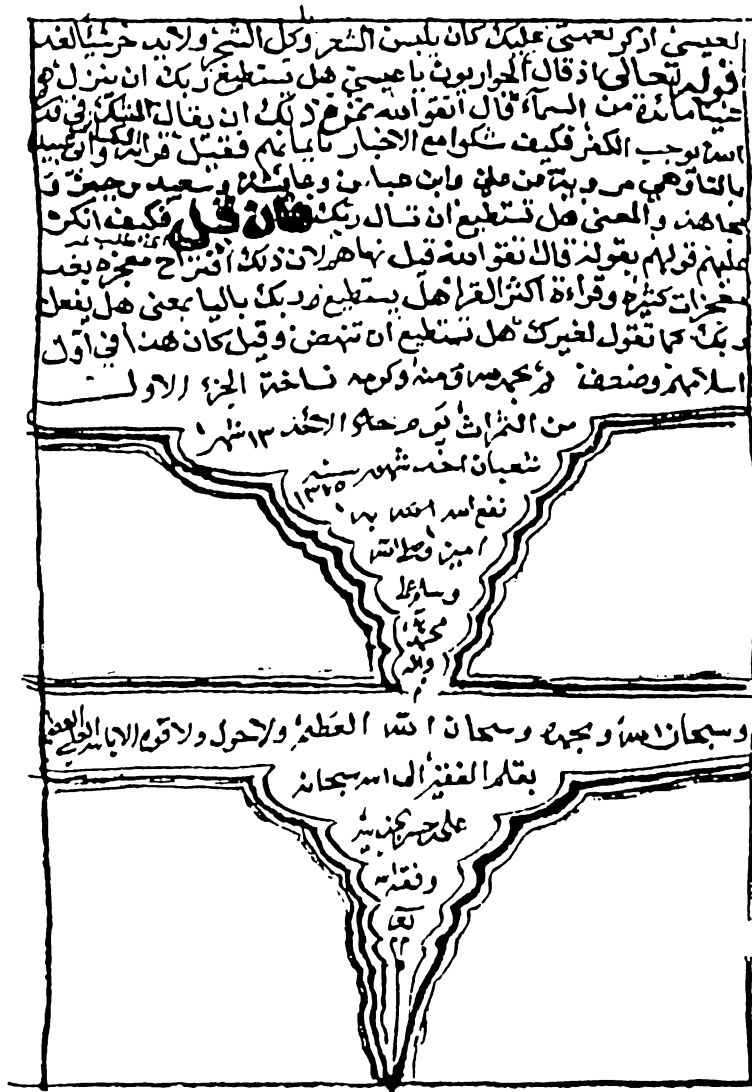 لعيسى اذكر نعمتي عليك كان يلبس الشعر وكل الشجر ولا يدخر شيئا لغد
قوله تعالى اذ قال الحواريون يا عيسى هل يستطيع ربك ان ينزل
علينا مائدة من السماء قال اتقوا الله ان يقال الشك في
الله يوجب الكفر فكيف شكوا مع الاخبار بايمانهم فقيل قراءة الكسائي
بالتا وهي مروية عن علي وابن عباس وعايشة وسعيد بن جبير
مجاهد والمعنى هل تستطيع ان تسال ربك فان قيل فكيف انكر
عليهم قولهم بقوله قال اتقوا الله قيل لان ذلك اقتراح معجزة بعد
معجزات كثيرة وقراءة اكثر القرا هل يستطيع ربك باليا بمعنى هل يفعل
ربك كما تقول لغيرك هل تستطيع ان تنهض وقيل كان هذا في اول
اسلامهم وضعف تم بحمد الله ومنه وكرمه نساخة الجزء الاول
من الثمرات يوم الاحد ١٣ شهر
شعبان احد شهور سنة
١٣٢٥
نفع الله به
امين وصلى الله
وسلم على
محمد
واله
م
وسبحان الله وبحمده وسبحان الله العظيم ولا حول ولا قوة الا بالله العلي العظيم
بقلم الفقير الى الله سبحانه
علي حسن
وفقه الله